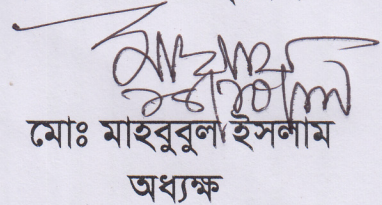 মোঃ মাহবুবুল ইসলাম
অধ্যক্ষ